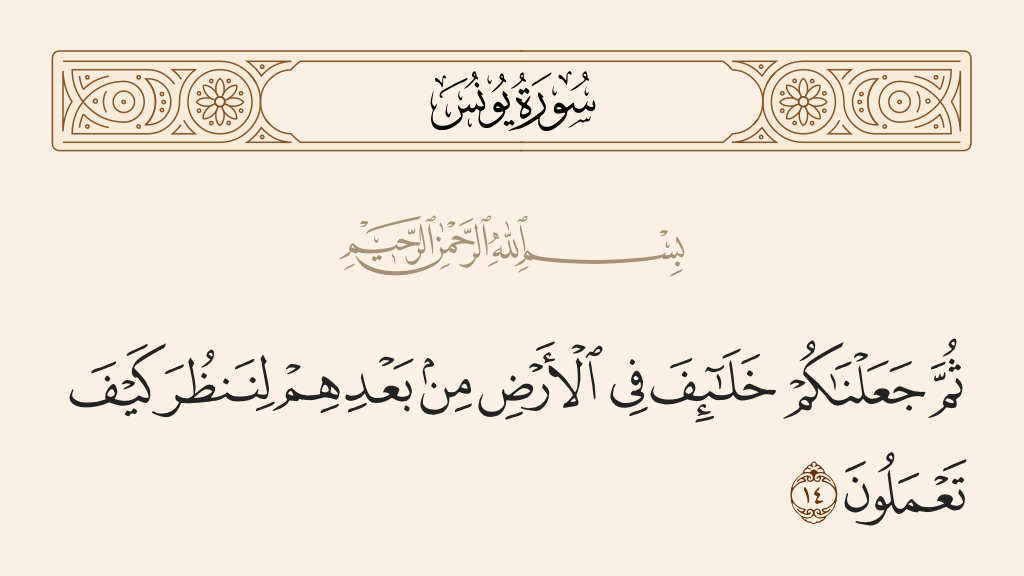 سُورَةُ يُونُسَ
بِسْمِ ٱللَّهِ ٱلرَّحْمَٰنِ ٱلرَّحِيمِ
ثُمَّ جَعَلْنَـٰكُمْ خَلَـٰٓئِفَ فِى ٱلْأَرْضِ مِنۢ بَعْدِهِمْ لِنَنظُرَ كَيْفَ
تَعْمَلُونَ ١٤